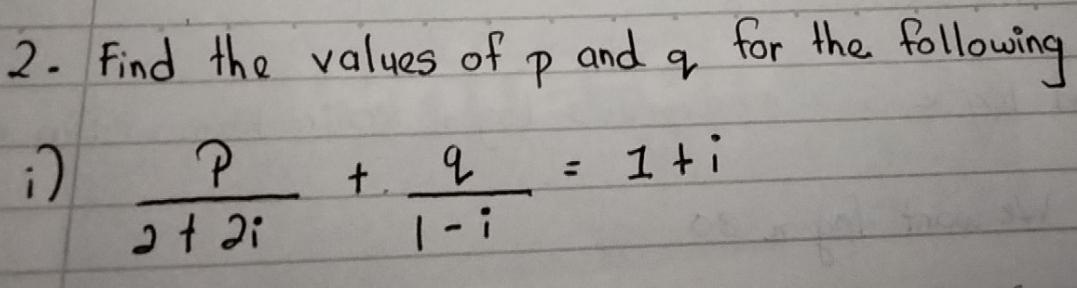 2. Find the values of p and q for the following
i) P/(2+2i) + q/(1-i) = 1+i